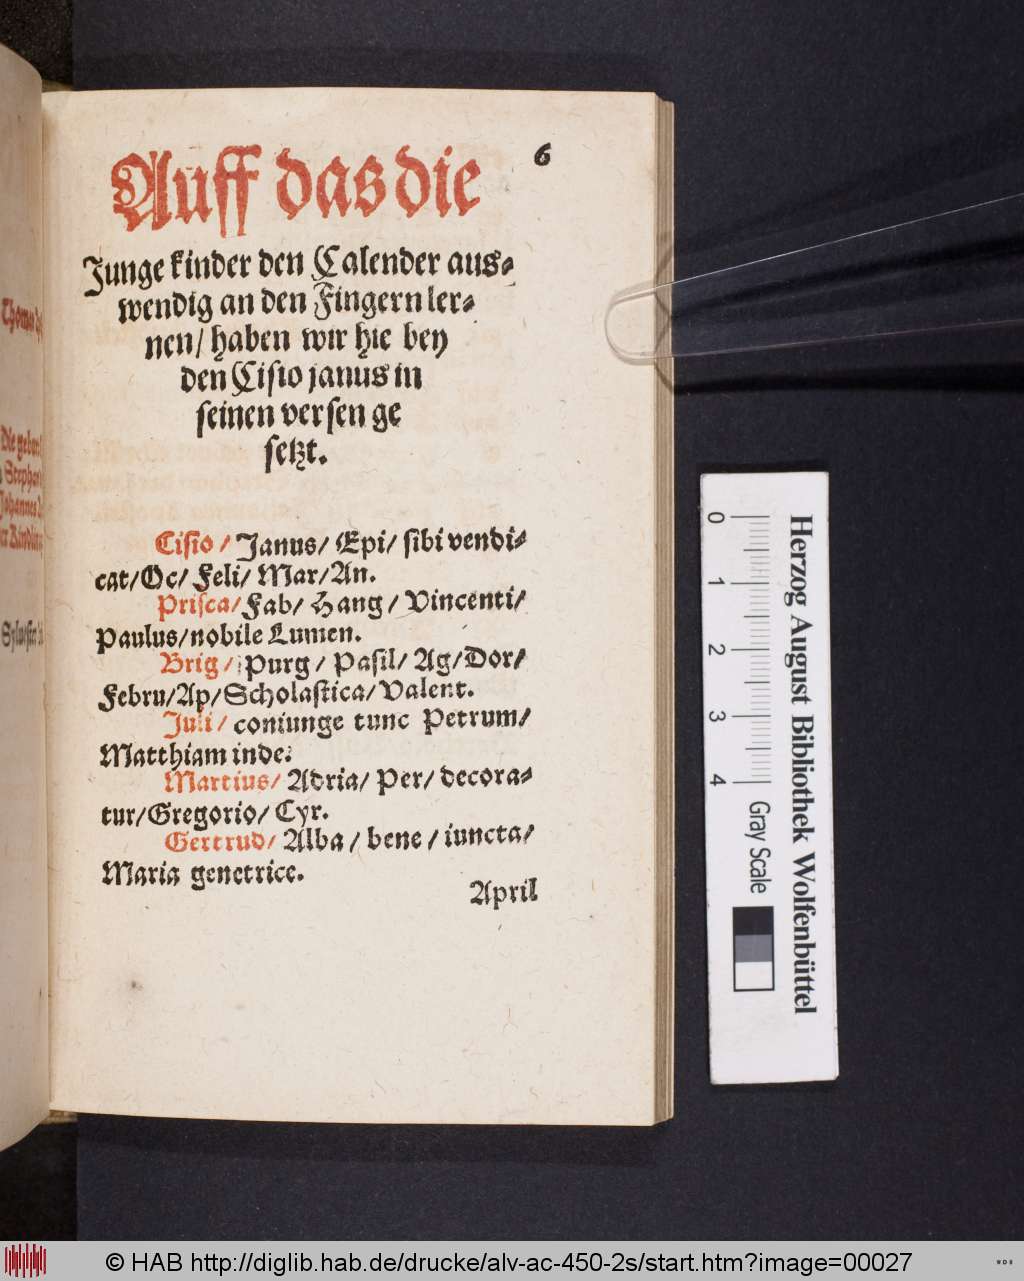 6
Auff das die
Junge kinder den Calender aus-
wendig an den Fingern ler-
nen/ haben wir hie bey
den Cisio janus in
seinen versen ge
setzt.
Cisio / Janus/ Epi/ sibi vendi-
cat/Oc/ Feli/ Mar/An.
Prisca/Fab/ Hang / Vincenti/
Paulus/nobile Lumen.
Brig/ Purg / Pasil/ Ag/Dor/
Febru/Ap/Scholastica/Valent.
Juli/ coniunge tunc Petrum/
Matthiam inde.
Martius/ Adria/ Per/ decora-
tur/Gregorio/ Cyr.
Gertrud/ Alba / bene / iuncta/
Maria genetrice.
April
Thomas
Die gebur
Stephan
Johannes
Herzog August Bibliothek Wolfenbüttel
0 1 2 3 4
Gray Scale
© HAB http://diglib.hab.de/drucke/alv-ac-450-2s/start.htm?image=00027